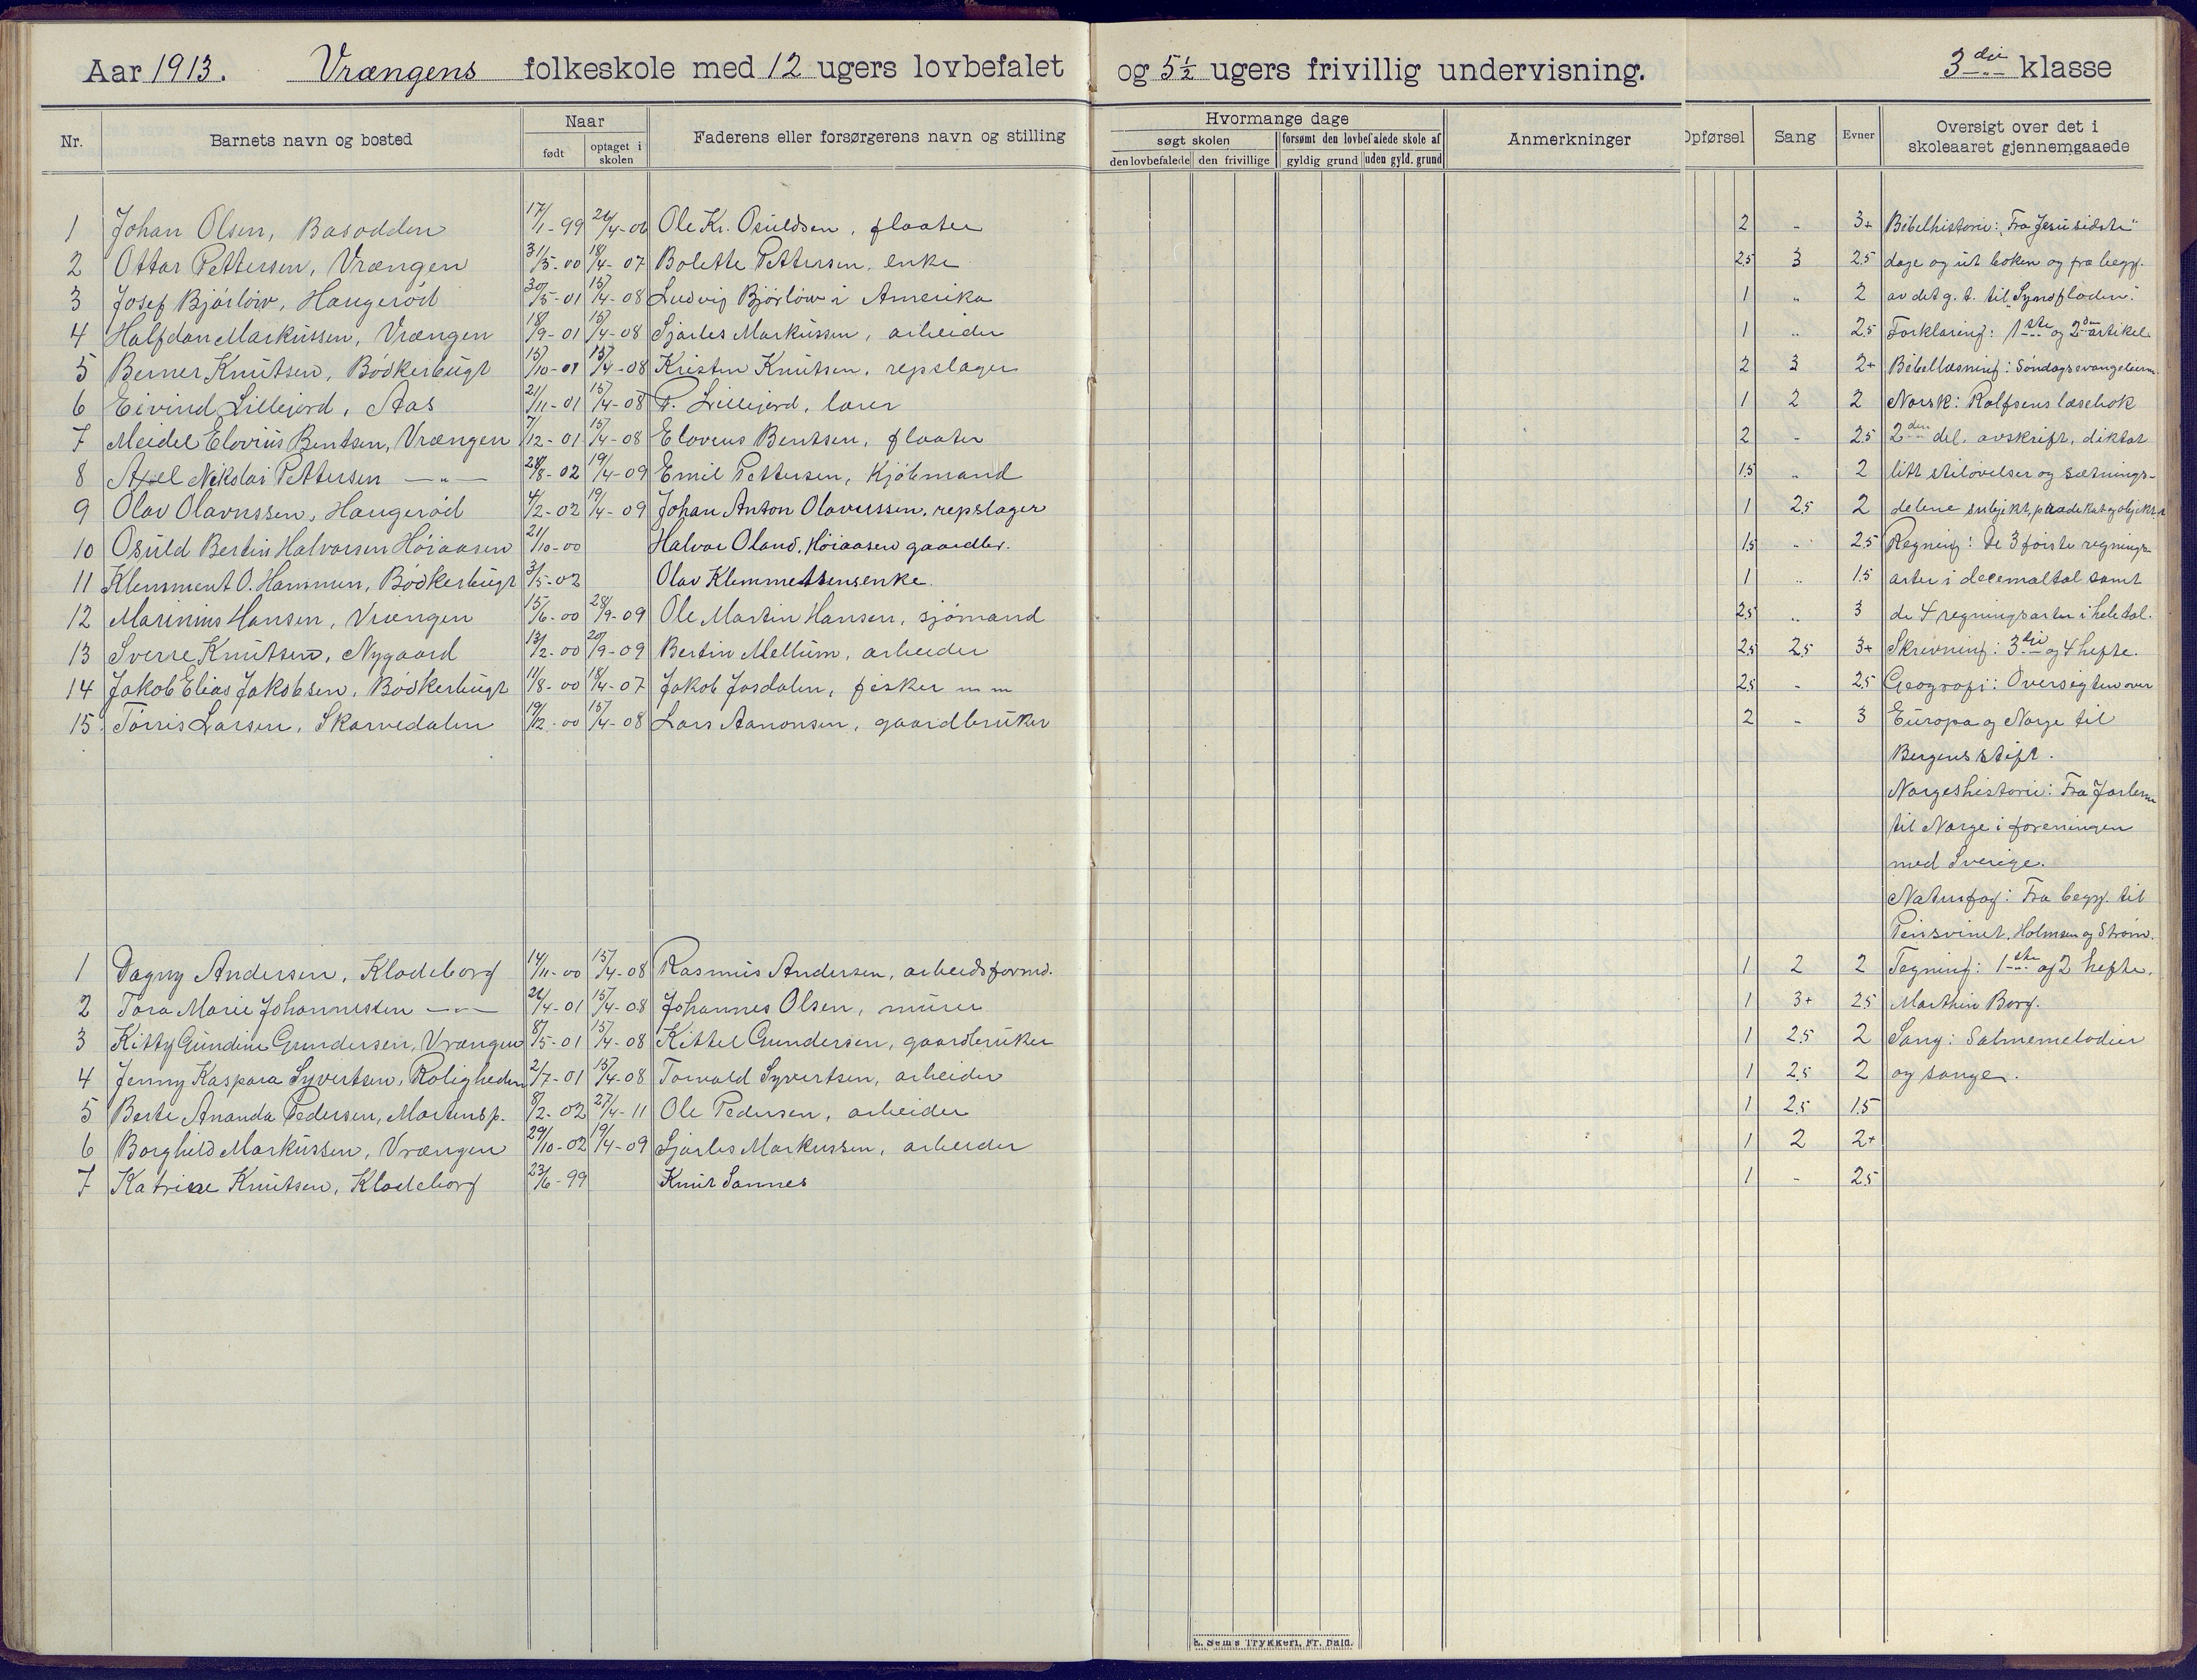 Aar 1913. Vrængens folkeskole med 12 ugers lovbefalet og 5 1/2 ugers frivillig undervisning. 3die klasse
Nr. Barnets navn og bosted Naar Faderens eller forsørgerens navn og stilling Hvormange dage Anmerkninger Opførsel Sang Evner Oversigt over det i skoleaaret gjennemgaaede
født optaget i skolen søgt skolen forsømt den lovbefalede skole af
den lovbefalede den frivillige gyldig grund uden gyld. grund
1 Johan Olsen, Basodden 17/1-99 Ole Kr. Osuldsen, flaater 2 „ 3+ Bibelhistorie: „Fra Jesu sidste"
2 Ottar Pettersen, Vrængen 31/5-00 18/4-07 Bolette Pettersen, enke 2.5 3 2.5 dage og ut boken og fra begy.
3 Josef Bjórlów, Haugeród 30/5-01 15/4-08 Ludvig Bjórlów i Amerika 1 „ 2 av det g. t. til „Syndfloden".
4 Halfdan Markussen, Vrængen 18/9-01 15/4-08 Sjarles Markussen, arbeider 1 „ 2.5 Forklaring: 1ste og 2den artikel
5 Berner Knutsen, Bódkerbugt 15/10-01 15/4-08 Kristen Knutsen, repslager 2 3 2+ Bibellæsning: Søndagsevangelierne
6 Eivind Lillejord, Aas 21/11-01 15/4-08 P. Lillejord, lærer 1 2 2 Norsk: Rolfsens læsebok
7 Meidel Elovius Bentsen, Vrængen 7/12-01 15/4-08 Elovius Bentsen, flaater 2 - 2.5 2den del, avskrift, diktat
8 Axel Nikolai Pettersen — „ — 28/8-02 19/4-09 Emil Pettersen, Kjóbmand 1.5 „ 2 litt stiløvelser og sætnings-
9 Olav Olavussen, Haugeród 4/2-02 19/4-09 Johan Anton Olavussen, repslager 1 2.5 2 delene subjekt, prædikat og objekt
10 Osuld Bertin Halvorsen Hóiaasen 21/10-00 Halvor Oland, Hóiaasen gaardbr. 1.5 - 2.5 Regning: De 3 første regnings-
11 Klemment O. Hammen, Bódkerbugt 3/5-02 Olav Klemmetsens enke. 1 „ 1.5 arter i decemaltal samt
12 Marinius Hansen, Vrængen 15/6-00 28/9-09 Ole Martin Hansen, sjómand 2.5 „ 3 de 4 regningsarter i hele tal.
13 Sverre Knutsen, Nygaard 13/2-00 20/9-09 Bertin Mellum, arbeider 2.5 2.5 3+ Skrivning: 3die og 4 hefte.
14 Jakob Elias Jakobsen, Bódkerbugt 11/8-00 18/4-07 Jakob Josdalen, fisker m m 2.5 - 2.5 Geografi: Oversigten over
15. Tórris Larsen, Skarvedalen 19/12-00 15/4-08 Lars Aanonsen, gaardbruker 2 - 3 Europa og Norge til
Bergens stift.
Norgeshistorie: Fra Jarlerne
til Norge i foreningen
med Sverige.
Naturfag: Fra begy. til
Pinsvinet. Holmsen og Strøm.
1 Dagny Andersen, Klodeborg 14/11-00 15/4-08 Rasmus Andersen, arbeidsformd. 1 2 2 Tegning: 1ste og 2 hefte.
2 Tora Marie Johannessen — „ — 26/4-01 15/4-08 Johannes Olsen, murer 1 3+ 2.5 Marthin Borg.
3 Kitty Gundine Gundersen, Vrængen 8/5-01 15/4-08 Kittel Gundersen, gaardbruker 1 2.5 2 Sang: Salmemelodier
4 Jenny Kaspara Syvertsen, Roligheden 2/7-01 15/4-08 Torvald Syvertsen, arbeider 1 2.5 2 og sange.
5 Berte Ananda Pedersen, Mortensp. 8/2-02 27/4-11 Ole Pedersen, arbeider 1 2.5 1.5
6 Borghild Markussen, Vrængen 29/10-02 19/4-09 Sjarles Markussen, arbeider 1 2 2+
7 Katrine Knutsen, Klodeborg 23/6-99 Knut Sannes 1 - 2.5
E. Sems Trykkeri, Fr.hald.